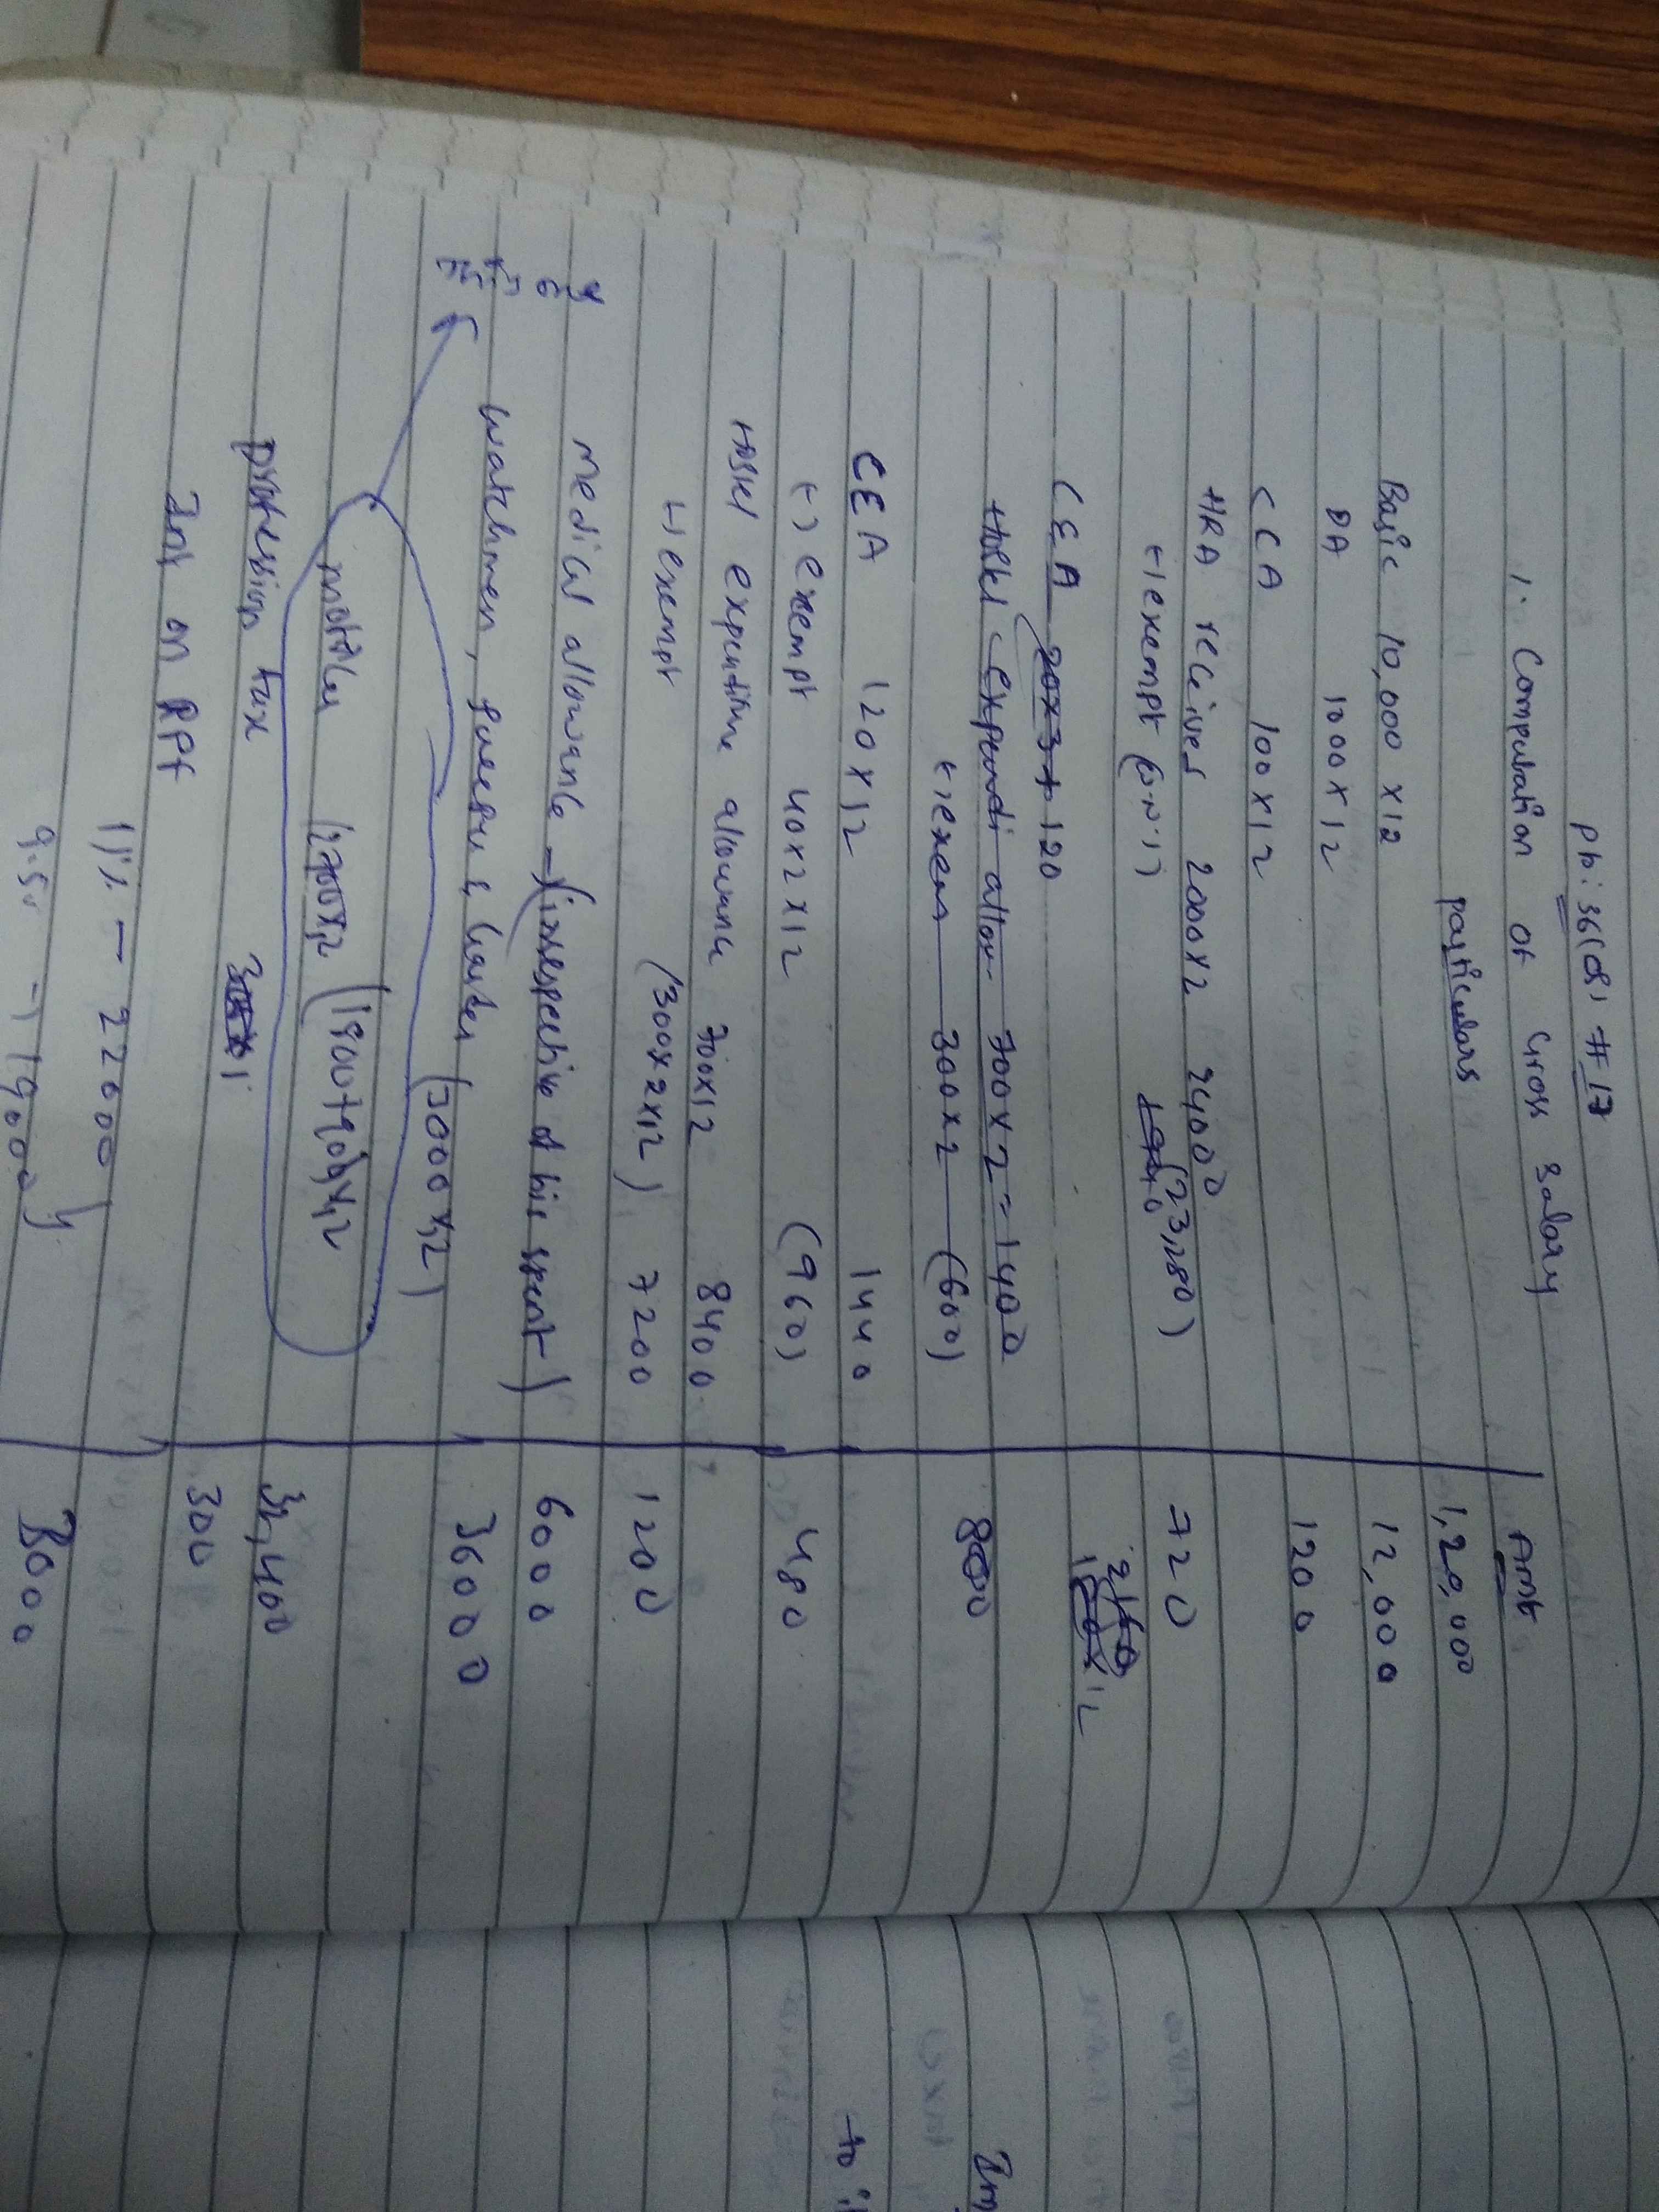 Pb: 36(B) #17
1. Computation of Gross Salary
particulars Amt
Basic 10,000 x12 1,20,000
DA 1000x12 12,000
CCA 100x12 1200
HRA receives 2000x12 24000
(-) exempt (W.N.1) (23,280) 720
CEA 120
Hostel expendi allow 700x2=1400
(-) exem 300x2 (600) 800
CEA 120x12 1440
(-) exempt 40x2x12 (960) 480
Hostel expenditure allowance 700x12 8400
(-) exempt (300x2x12) 7200 1200
Medical allowance (irrespective of his spent) 6000
Watchmen, sweeper & (3000x12) 36000
(1800+900)x12 32,400
profession tax 300
Int on RPF
11% - 22000
9.50 - 19000 3000